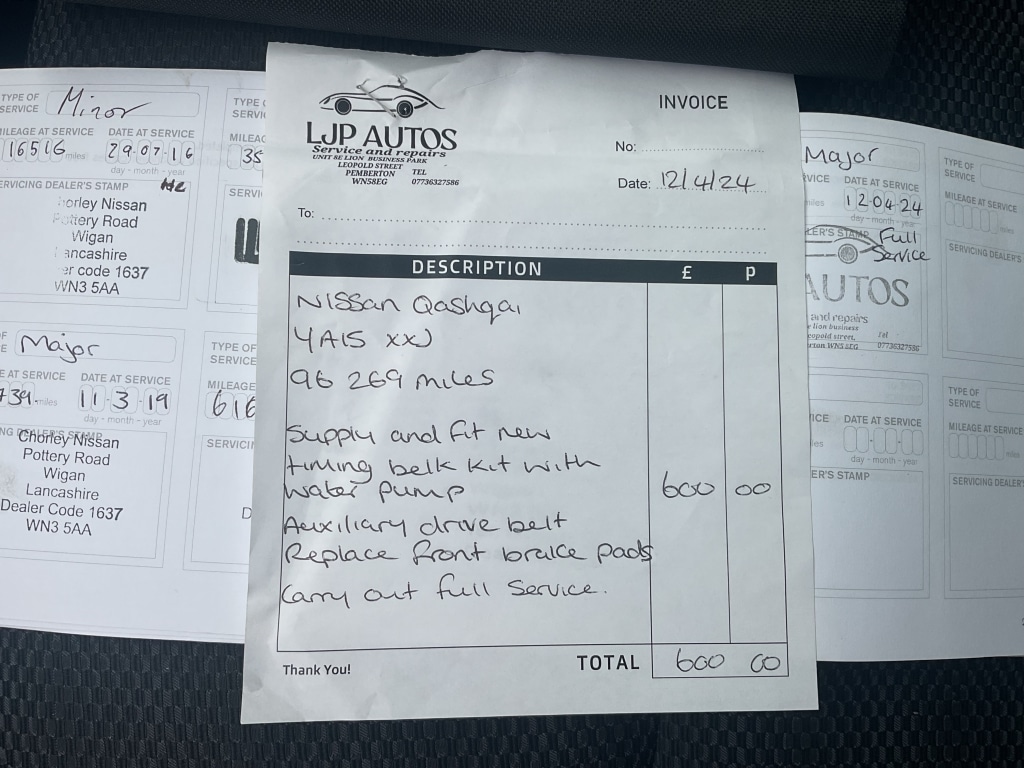 TYPE OF
SERVICE
Minor
MILEAGE AT SERVICE
DATE AT SERVICE
16516 miles
29-07-16
day - month - year
SERVICING DEALER'S STAMP
orley Nissan
Pottery Road
Wigan
ancashire
er code 1637
WN3 5AA
Major
E AT SERVICE
DATE AT SERVICE
739 miles
11-3-19
day - month - year
Chorley Nissan
Pottery Road
Wigan
Lancashire
Dealer Code 1637
WN3 5AA
TYPE
SERVI
MILEAG
35
SERVI
TYPE OF
SERVICE
MILEAGE
616
SERVICI
D
LJP AUTOS
Service and repairs
UNIT 8E LION BUSINESS PARK
LEOPOLD STREET
PEMBERTON TEL
WN58EG 07736327586
INVOICE
No:
Date: 12/4/24
To:
DESCRIPTION £ P
Nissan Qashqai
YA15 XXJ
96 269 miles
Supply and fit new
timing belk kit with
water pump 600 00
Auxiliary drive belt
Replace front brake pads
Carry out full Service.
Thank You!
TOTAL 600 00
Major
RVICE
DATE AT SERVICE
iles
12-04-24
day - month - year
LER'S STAMP
Full
Service
AUTOS
and repairs
e lion business
eopold street, Tel
rton WN5 8EG 07736327586
ICE
DATE AT SERVICE
les
day - month - year
ER'S STAMP
TYPE OF
SERVICE
MILEAGE AT SERVICE
miles
SERVICING DEALER'S
TYPE OF
SERVICE
MILEAGE AT SERVICE
miles
SERVICING DEALER'S